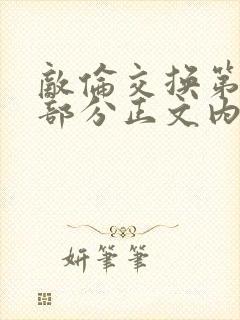 敵倫交换第
部分正文内
妍筆筆